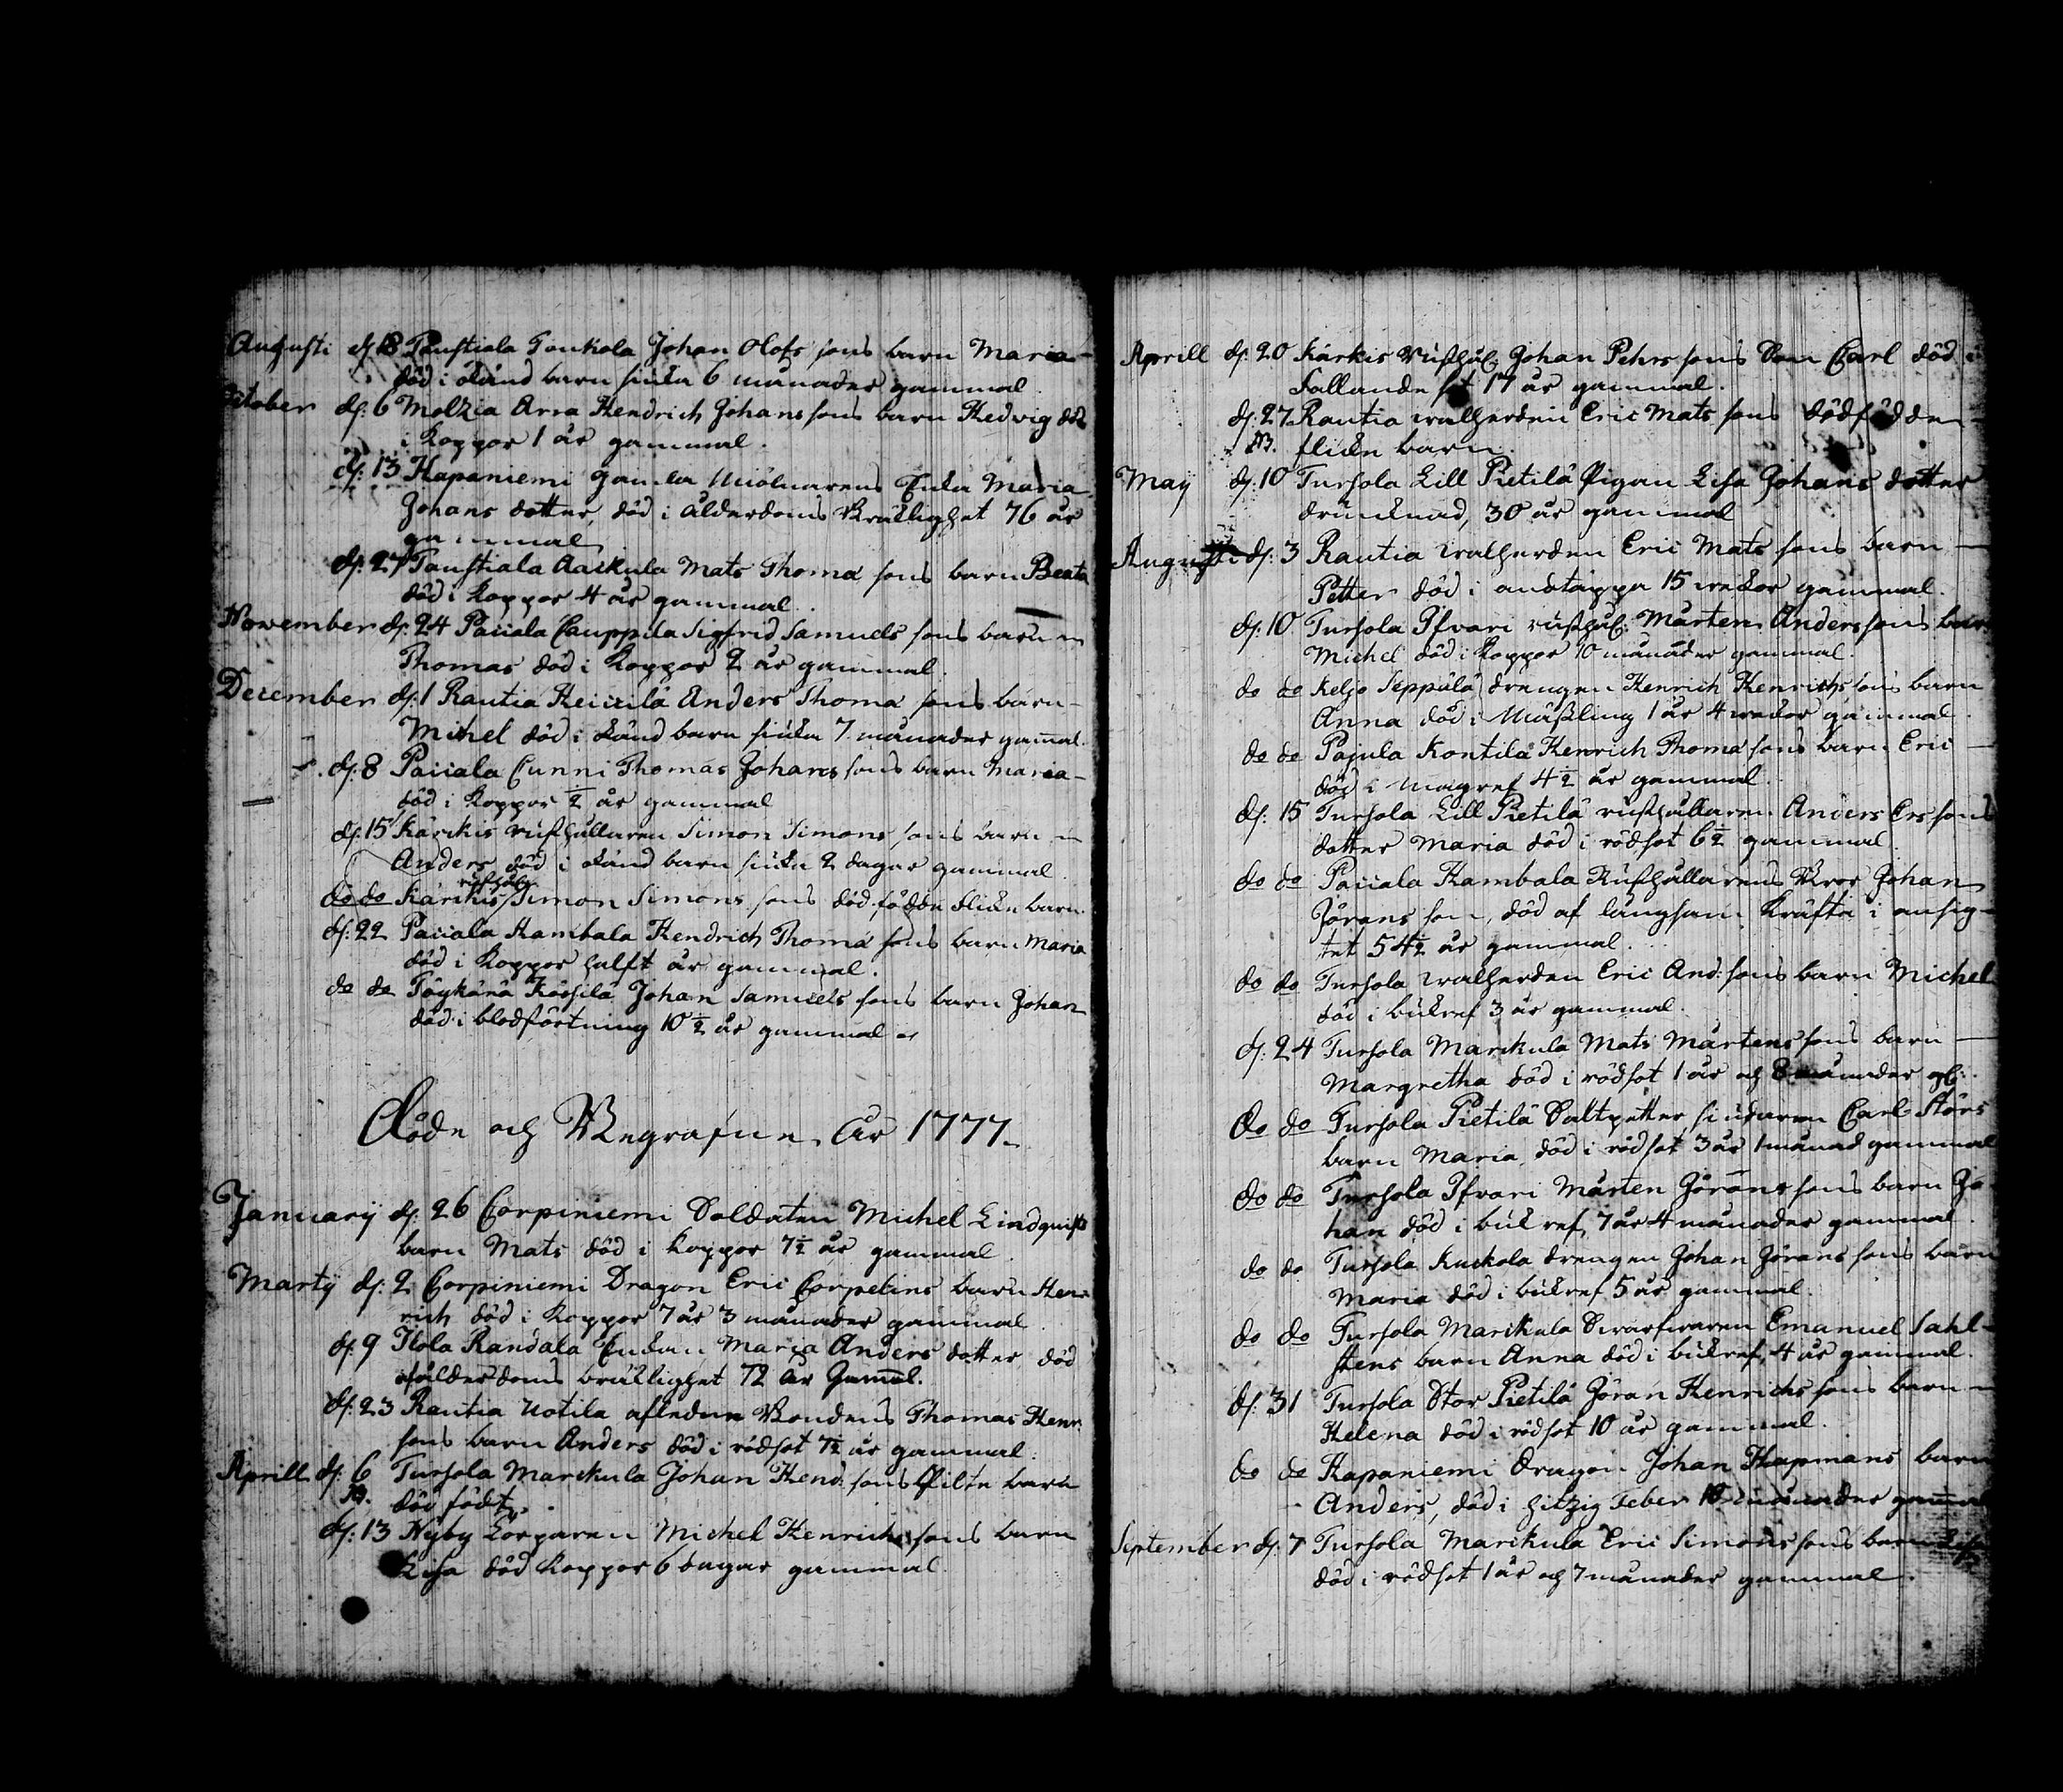 Augusti d. 18 Taustiala Tonkola Johan Olofs sons barn Maria
död i okänd barn siuka 6 månader gammal
October d. 6 Molzia Arra Hendrich Johans sons barn Hedvig död
i Koppor 1 år gammal.
d. 13 Hapaniemi gamla Miölnarens Enka Maria
Johans dotter, död i ålderdoms Bräklighet 76 år
gammal
d. 27 Taustiala Aackula Mats Thomæ sons barn Beata
död i Koppor 4 år gammal.
November d. 24 Paiiala Cauppila Sigfrid Samuels sons barn
Thomas död i Koppor 2 år gammal.
December d. 1 Rautia Heickilä Anders Thomæ sons barn
Michel död i okänd barn siuka 7 månader gamal.
d. 8 Paiiala Cunni Thomas Johans sons barn Maria
död i Koppor ½ år gammal
d. 15 Kärckis rusthållaren Simon Simons sons barn
Anders död i okänd barn siuka 2 dagar gammal
rusthåls
do do Kärckis Simon Simons sons död födde flicke barn.
d. 22 Paiiala Kambala Hendrich Thomæ sons barn Maria
död i Koppor halft år gammal.
do do Töykänä Kössilä Johan Samuels sons barn Johan
död i blodförstning 10½ år gammal

Döde och Begrafne År 1777.

January d. 26 Corpiniemi Soldaten Michel Lindquists
barn Mats död i Koppor 7½ år gammal
Martij d. 2 Corpiniemi Dragon Eric Corpelins barn Hen
rich död i Koppor 7 år 3 månader gammal
d. 9 Ilola Randala Enkan Maria Anders dotter död
ålderdoms bräklighet 72 år Gamal.
d. 23 Rautia Uotila afledne Bondens Thomas Henr.
sons barn Anders död i rödsot 7½ år gammal.
Aprill d. 6 Tursola Marckula Johan Hend: sons Pilte barn
NB. död födt.
d. 13 Nyby Torparen Michel Henrichs sons barn
Lisa död Koppor 6 dagar gammal

Aprill d. 20 Kärkis rusthål: Johan Pehrs sons Son Carl död i
Fallande sot 17 år gammal.
d. 27 Rautia walherden Eric Mats sons dödfödde
NB. flicke barn
Maij d. 10 Tursola Lill Pietilä Pigan Lisa Johans dotter
drunknad, 30 år gammal
Augusti d. 3 Rautia walherden Eric Mats sons barn
Petter död i andtäppa 15 wekor gammal.
d. 10 Tursola Ifvari rusthål: Mårten Anders sons barn
Michel död i Koppor 10 månader gammal.
do do Keljo Seppälä drengen Henrich Henrichs sons barn
Anna död i Mäßling 1 år 4 wekor gammal
do do Pajula Kontila Henrich Thomæ sons barn Eric
död i magref 4½ år gammal
d. 15 Tursola Lill Pietilä rusthållaren Anders Ers sons
dotter Maria död i rödsot 6½ gammal
do do Paiiala Kambala Rusthållarens Bror Johan
Jörans son, död af långsam Kräfta i ansig-
tet 54½ år gammal.
do do Tursola walherden Eric And: sons barn Michel
död i bukref 3 år gammal.
d. 24 Tursola Marckula Mats Mårtens sons barn
Margretha död i rödsot 1 år och 8 månader gl:
do do Tursola Pietilä Saltpetter siudaren Carl Störs
barn Maria död i rödsot 3 år 1 månad gammal
do do Tursola Ifvari Mårten Jörans sons barn Jo
han död i bukref, 7 år 4 månader gammal
do do Tursola Kuckola drengen Johan Jörans sons barn
Maria död i bukref 5 år gammal.
do do Tursola Marckula Swarfwaren Emanuel Sahl-
stens barn Anna död i bukref, 4 år gammal.
d. 31 Tursola Stor Pietilä Jöran Henrichs sons barn
Helena död i rödsot 10 år gammal.
do do Hapaniemi dragon Johan Hapmans barn
Anders, död i hitzig Feber 10 månader gamal
September d. 7 Tursola Marckula Eric Simons sons barn Lisa
död i rödsot 1 år och 7 månader gammal.